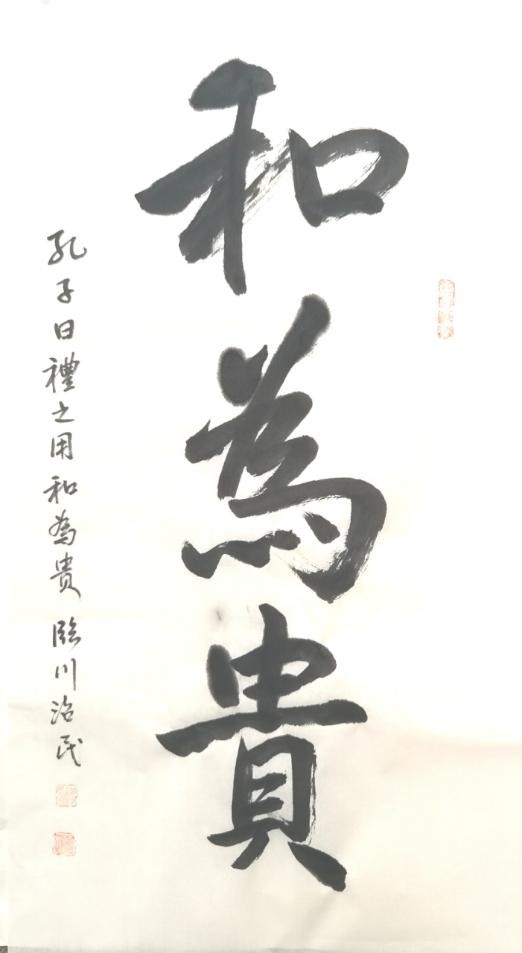 和為貴
孔子曰禮之用和為貴 臨川治民